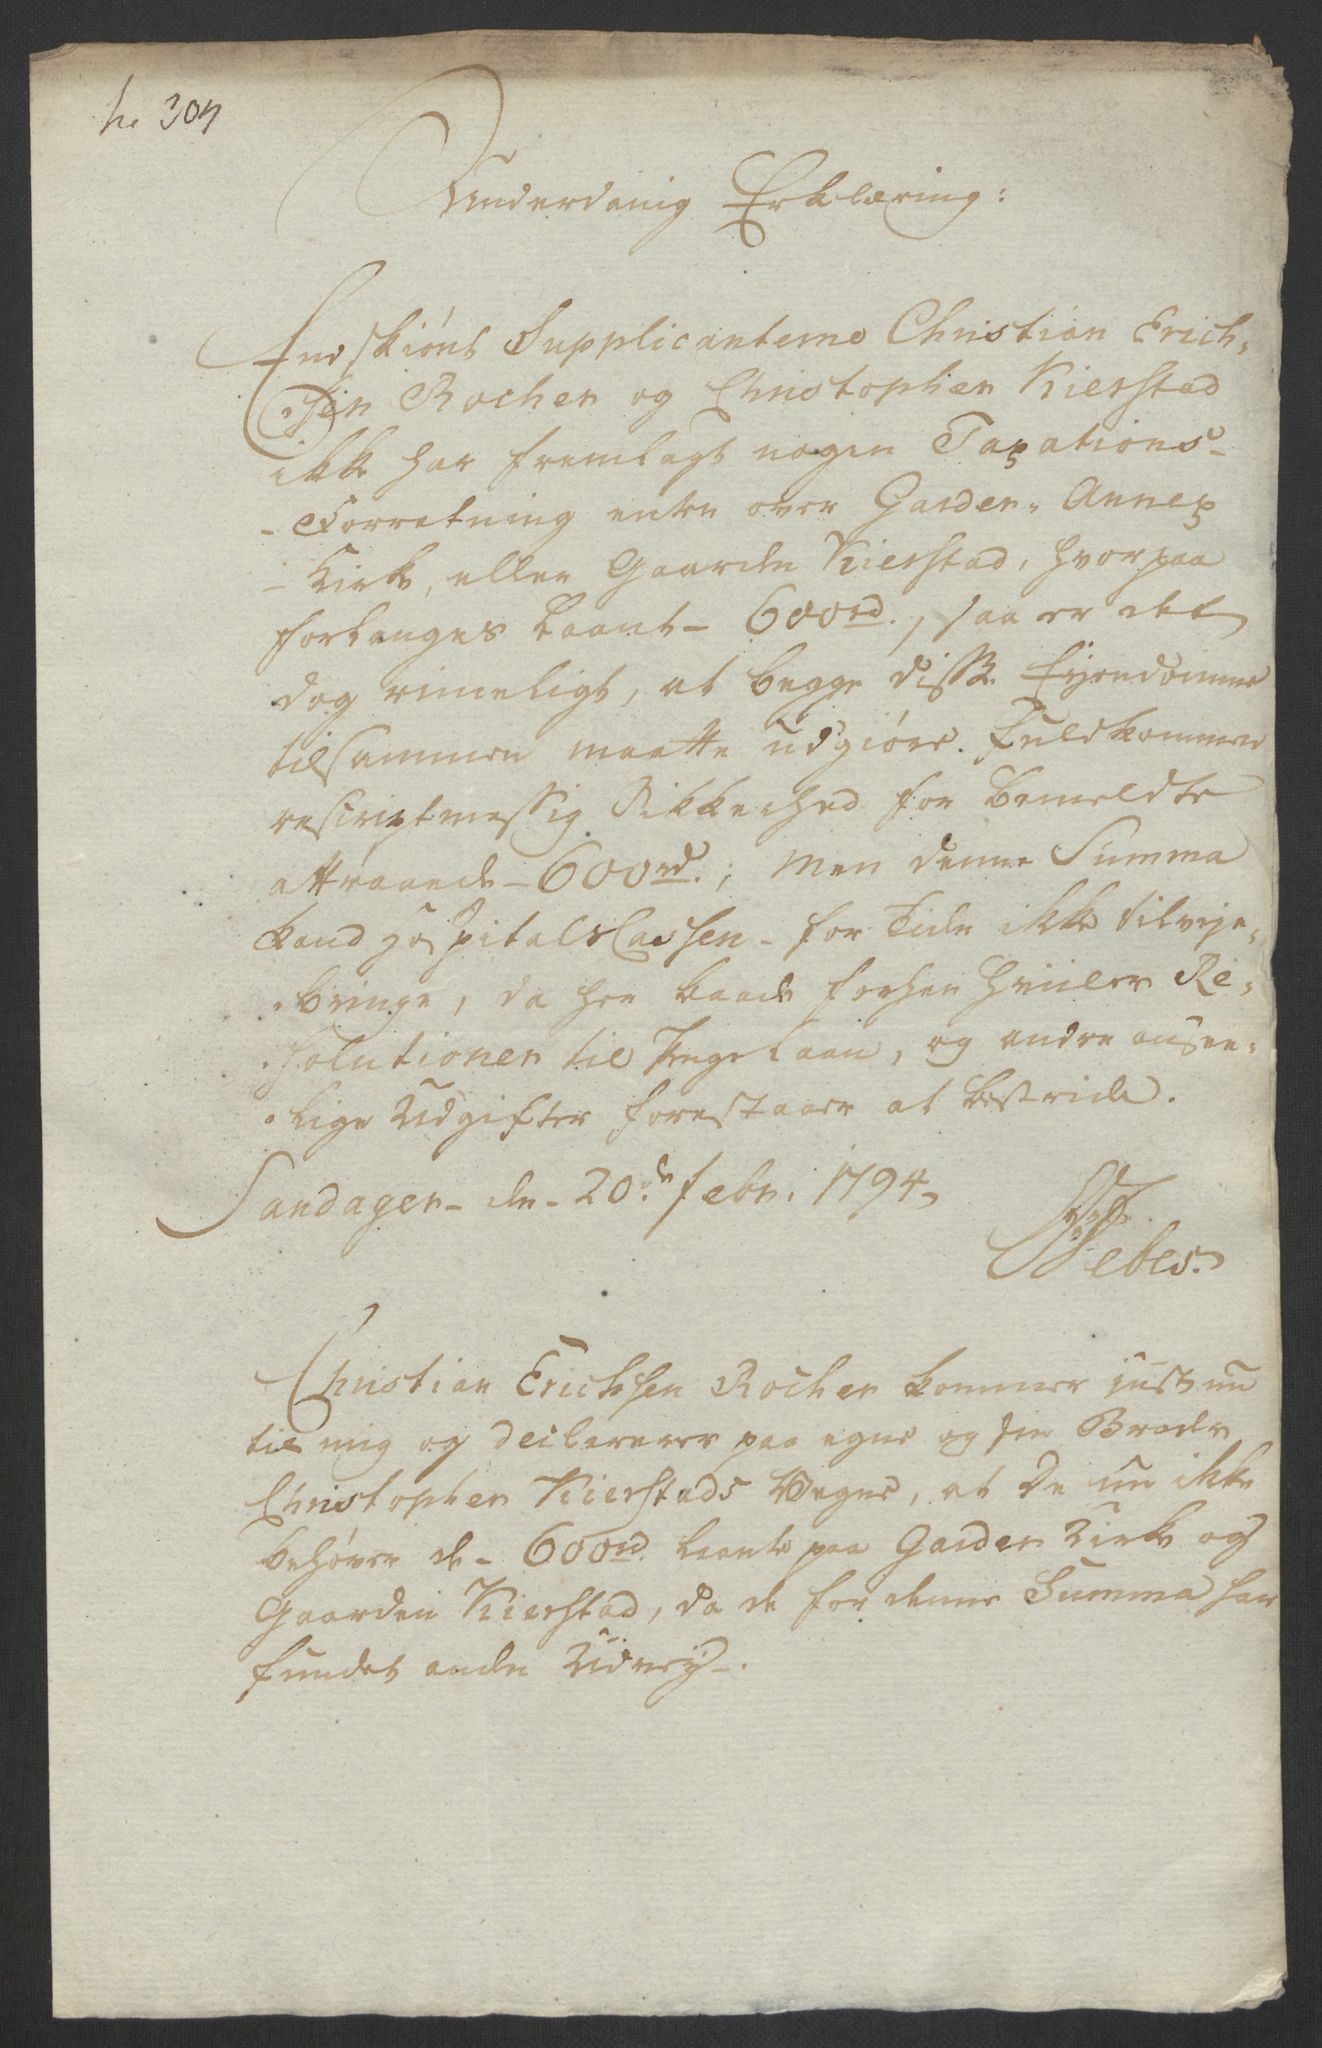 No 307
Underdanig Erklæring:
Endskiönt Supplicanterne Christian Erich-
-sen Rocher og Christopher Kierstad
ikke har fremlagt nogen Taxations-
-Forretning enten over Garder-Annex
-Kirke, eller Gaarden Kierstad, hvorpaa
forlanges laant - 600rd., saa er det
dog rimeligt, at begge disse Eyendomme
tilsammen maatte udgiöre fuldkommen
rescriptmessig Sikkerhed for bemeldte
attraaede - 600rd.; Men denne Summa
kand Hospitals Cassen - for Tiden ikke tilveje-
-bringe, da her baade forhen hviiler Re-
-solutioner til Penge Laan, og andre ansee-
-lige Udgifter forestaaer at bestride.
Sandager - den - 20de Febr. 1794
Debes.
Christian Erichsen Rocher kommer just nu
til mig og declarerer paa egne og sin Broder
Christopher Kierstads Vegne, at de nu ikke
behöver de - 600rd. laante paa Garder Kirke og
Gaarden Kierstad, da de for denne Summa har
fundet anden Udvej.